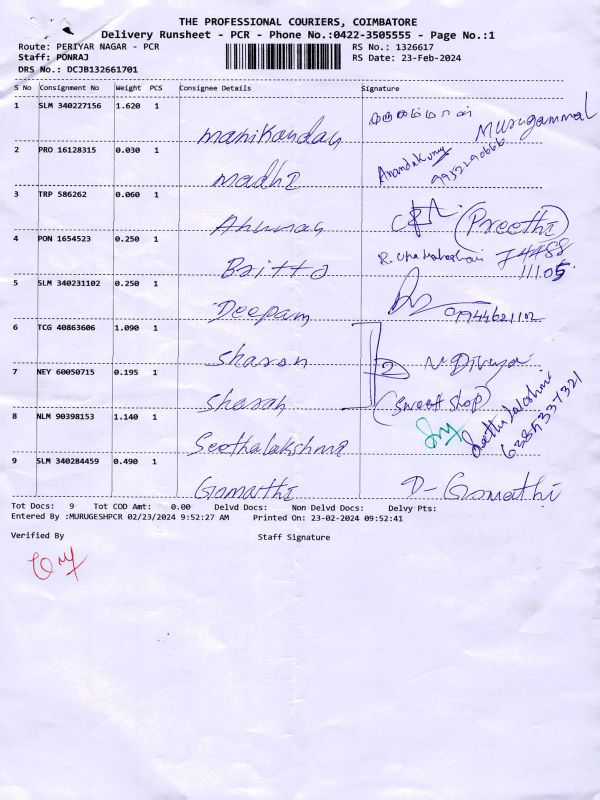 THE PROFESSIONAL COURIERS, COIMBATORE
Delivery Runsheet - PCR - Phone No.:0422-3505555 - Page No.:1
Route: PERIYAR NAGAR - PCR
RS No.: 1326617
Staff: PONRAJ
RS Date: 23-Feb-2024
DRS No.: DCJB132661701
S No Consignment No Weight PCS Consignee Details Signature
1 SLM 340227156 1.620 1 manikandan Murugammal
2 PRO 16128315 0.030 1 madhi Anandakumar
3 TRP 586262 0.060 1 (Preethi)
4 PON 1654523 0.250 1 Britto R. Uma maheshwari 74488
11105
5 SLM 340231102 0.250 1 Deepam 9944621102
6 TCG 40863606 1.090 1 sharon N Divya
7 NEY 60050715 0.195 1 sharan (sweet shop)
8 NLM 90398153 1.140 1 Seethalakshmi Seethalakshmi
6385337321
9 SLM 340284459 0.490 1 Gomathi D- Gomathi
Tot Docs: 9 Tot COD Amt: 0.00 Delvd Docs: Non Delvd Docs: Delvy Pts:
Entered By :MURUGESHPCR 02/23/2024 9:52:27 AM Printed On: 23-02-2024 09:52:41
Verified By Staff Signature